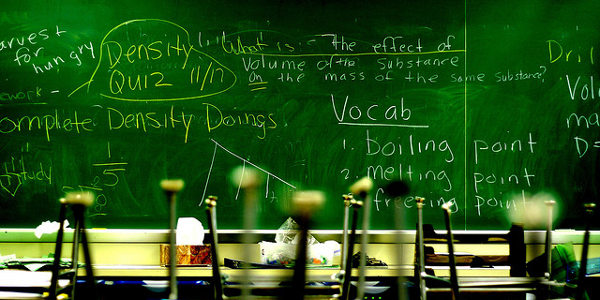 arvest
for
hungry
Density
Quiz 11/17
What is the effect of
Volume of the substance
on the mass of the same substance?
ework -
omplete Density Doings.
1
5
Study
Vocab
1. boiling point
2. melting point
freezing point
Dril
Vol
ma
D=